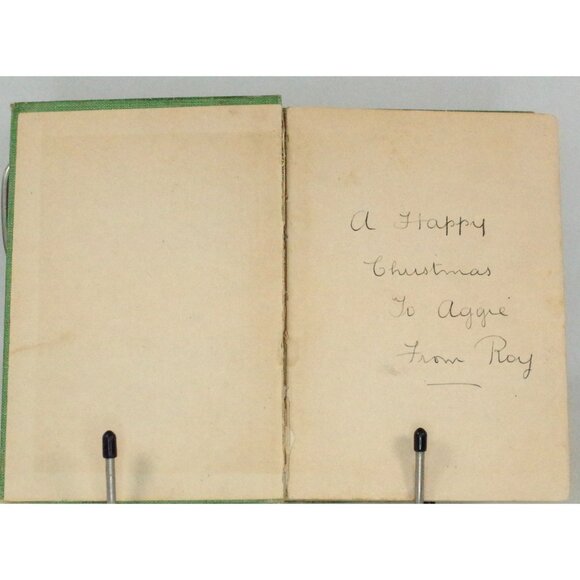 A Happy
Christmas
To Aggie
From Roy